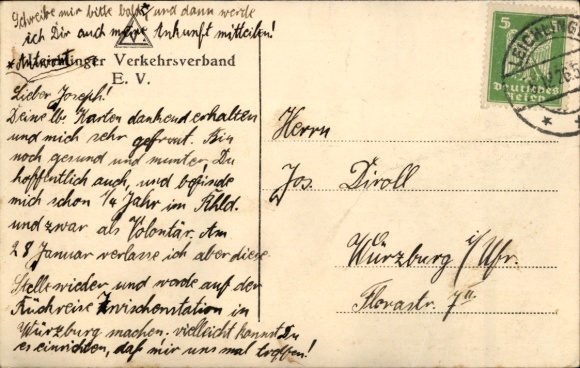 Schreibe mir bitte bald, und dann werde
ich Dir auch meine Ankunft mitteilen!
* Antwort
Leichlinger Verkehrsverband
E. V.
Lieber Joseph!
Deine lb. Karten dankend erhalten
und mich sehr gefreut. Bin
noch gesund und munter, Du
hoffentlich auch, und befinde
mich schon 1/4 Jahr im Rhld.
und zwar als Volontär. Am
28 Januar verlasse ich aber diese
Stelle wieder und werde auf der
Rückreise Zwischenstation in
Würzburg machen. vielleicht kannst Du
es einrichten, daß mir uns mal treffen!
5
Deutsches
Reich
LEICHLINGEN
Herrn
Jos. Diroll
Würzburg i/Ufr.
Florastr. 7a